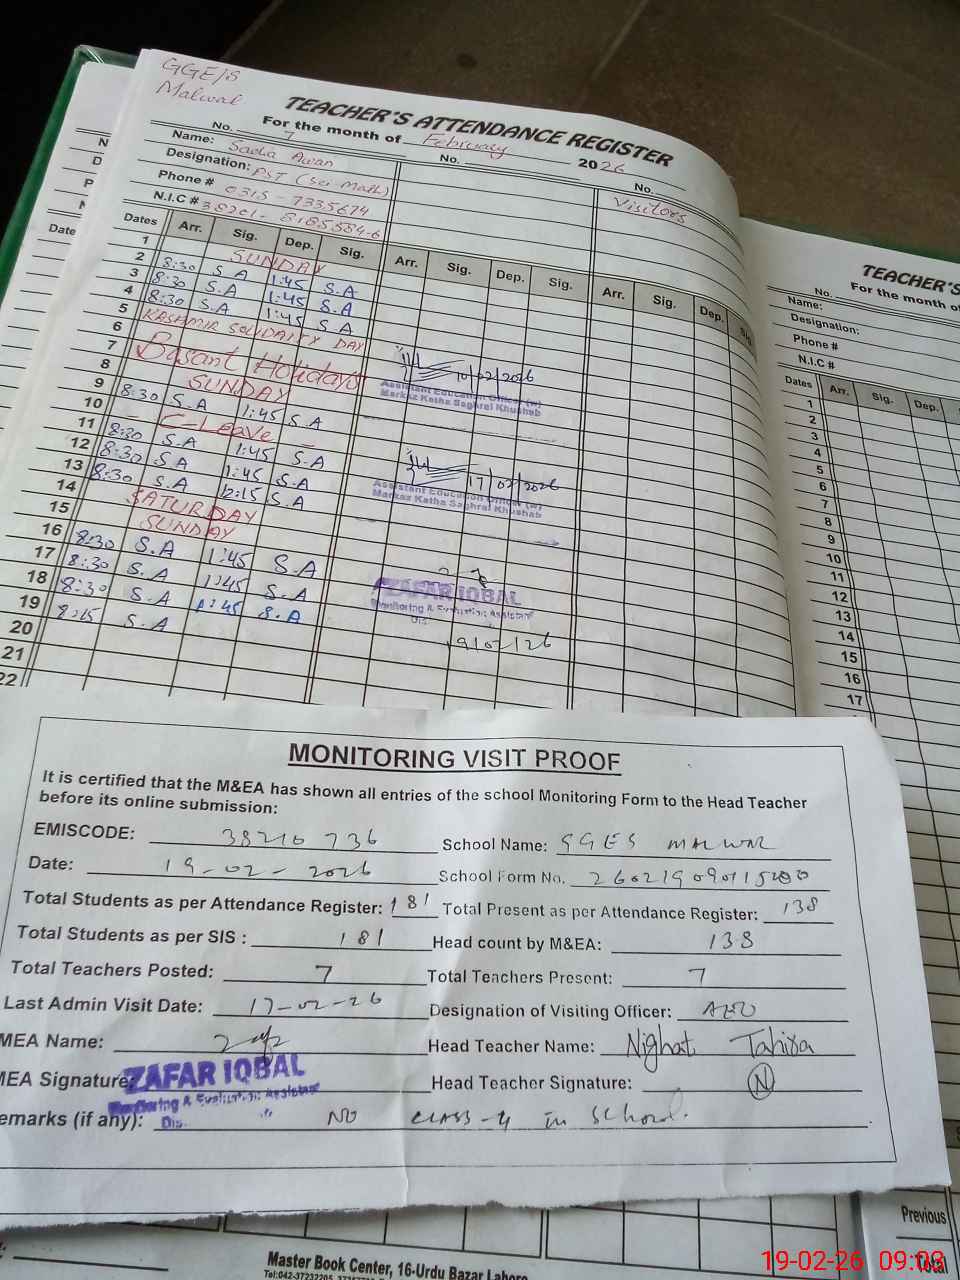 GGE/S
Malwal
TEACHER'S ATTENDANCE REGISTER
For the month of February 2026
No. 7 No. No.
Name: Sadia Awan
Designation: PST (Sci-Math)
Visitors
Phone # 0315-7335674
N.I.C # 38201-8185584-6
Dates Arr. Sig. Dep. Sig. Arr. Sig. Dep. Sig. Arr. Sig. Dep.
1 SUNDAY
2 8:30 S.A 1:45 S.A
3 8:30 S.A 1:45 S.A
4 8:30 S.A 1:45 S.A
5 KASHMIR SOLIDARITY DAY
6
7 Basant Holidays
8 SUNDAY
9 8:30 S.A 1:45 S.A
10 C-Leave
11 8:30 S.A 1:45 S.A
12 8:30 S.A 1:45 S.A
13 8:30 S.A 12:15 S.A
14 SATURDAY
15 SUNDAY
16 8:30 S.A 1:45 S.A
17 8:30 S.A 1:45 S.A
18 8:30 S.A 1:45 S.A
19 8:15 S.A
20
21
22
10/02/2026
Assistant Education Officer (w)
Markaz Katha Saghral Khushab
17/02/2026
Assistant Education Officer (w)
Markaz Katha Saghral Khushab
ZAFAR IQBAL
Monitoring & Evaluation Assistant
Dis
19/02/26
TEACHER'S
No.
For the month of
Name:
Designation:
Phone #
N.I.C #
Dates Arr. Sig. Dep.
1
2
3
4
5
6
7
8
9
10
11
12
13
14
15
16
17
MONITORING VISIT PROOF
It is certified that the M&EA has shown all entries of the school Monitoring Form to the Head Teacher
before its online submission:
EMISCODE: 38210736 School Name: GGES MALWAL
Date: 19-02-2026 School Form No. 260219090115200
Total Students as per Attendance Register: 181 Total Present as per Attendance Register: 138
Total Students as per SIS : 181 Head count by M&EA: 138
Total Teachers Posted: 7 Total Teachers Present: 7
Last Admin Visit Date: 17-02-26 Designation of Visiting Officer: AEO
MEA Name: Head Teacher Name: Nighat Tahira
MEA Signature: Head Teacher Signature: N
ZAFAR IQBAL
Monitoring & Evaluation Assistant
Dis
emarks (if any): NO CLASS-4 in School.
Previous
Total
Master Book Center, 16-Urdu Bazar Lahore
19-02-26 09:03